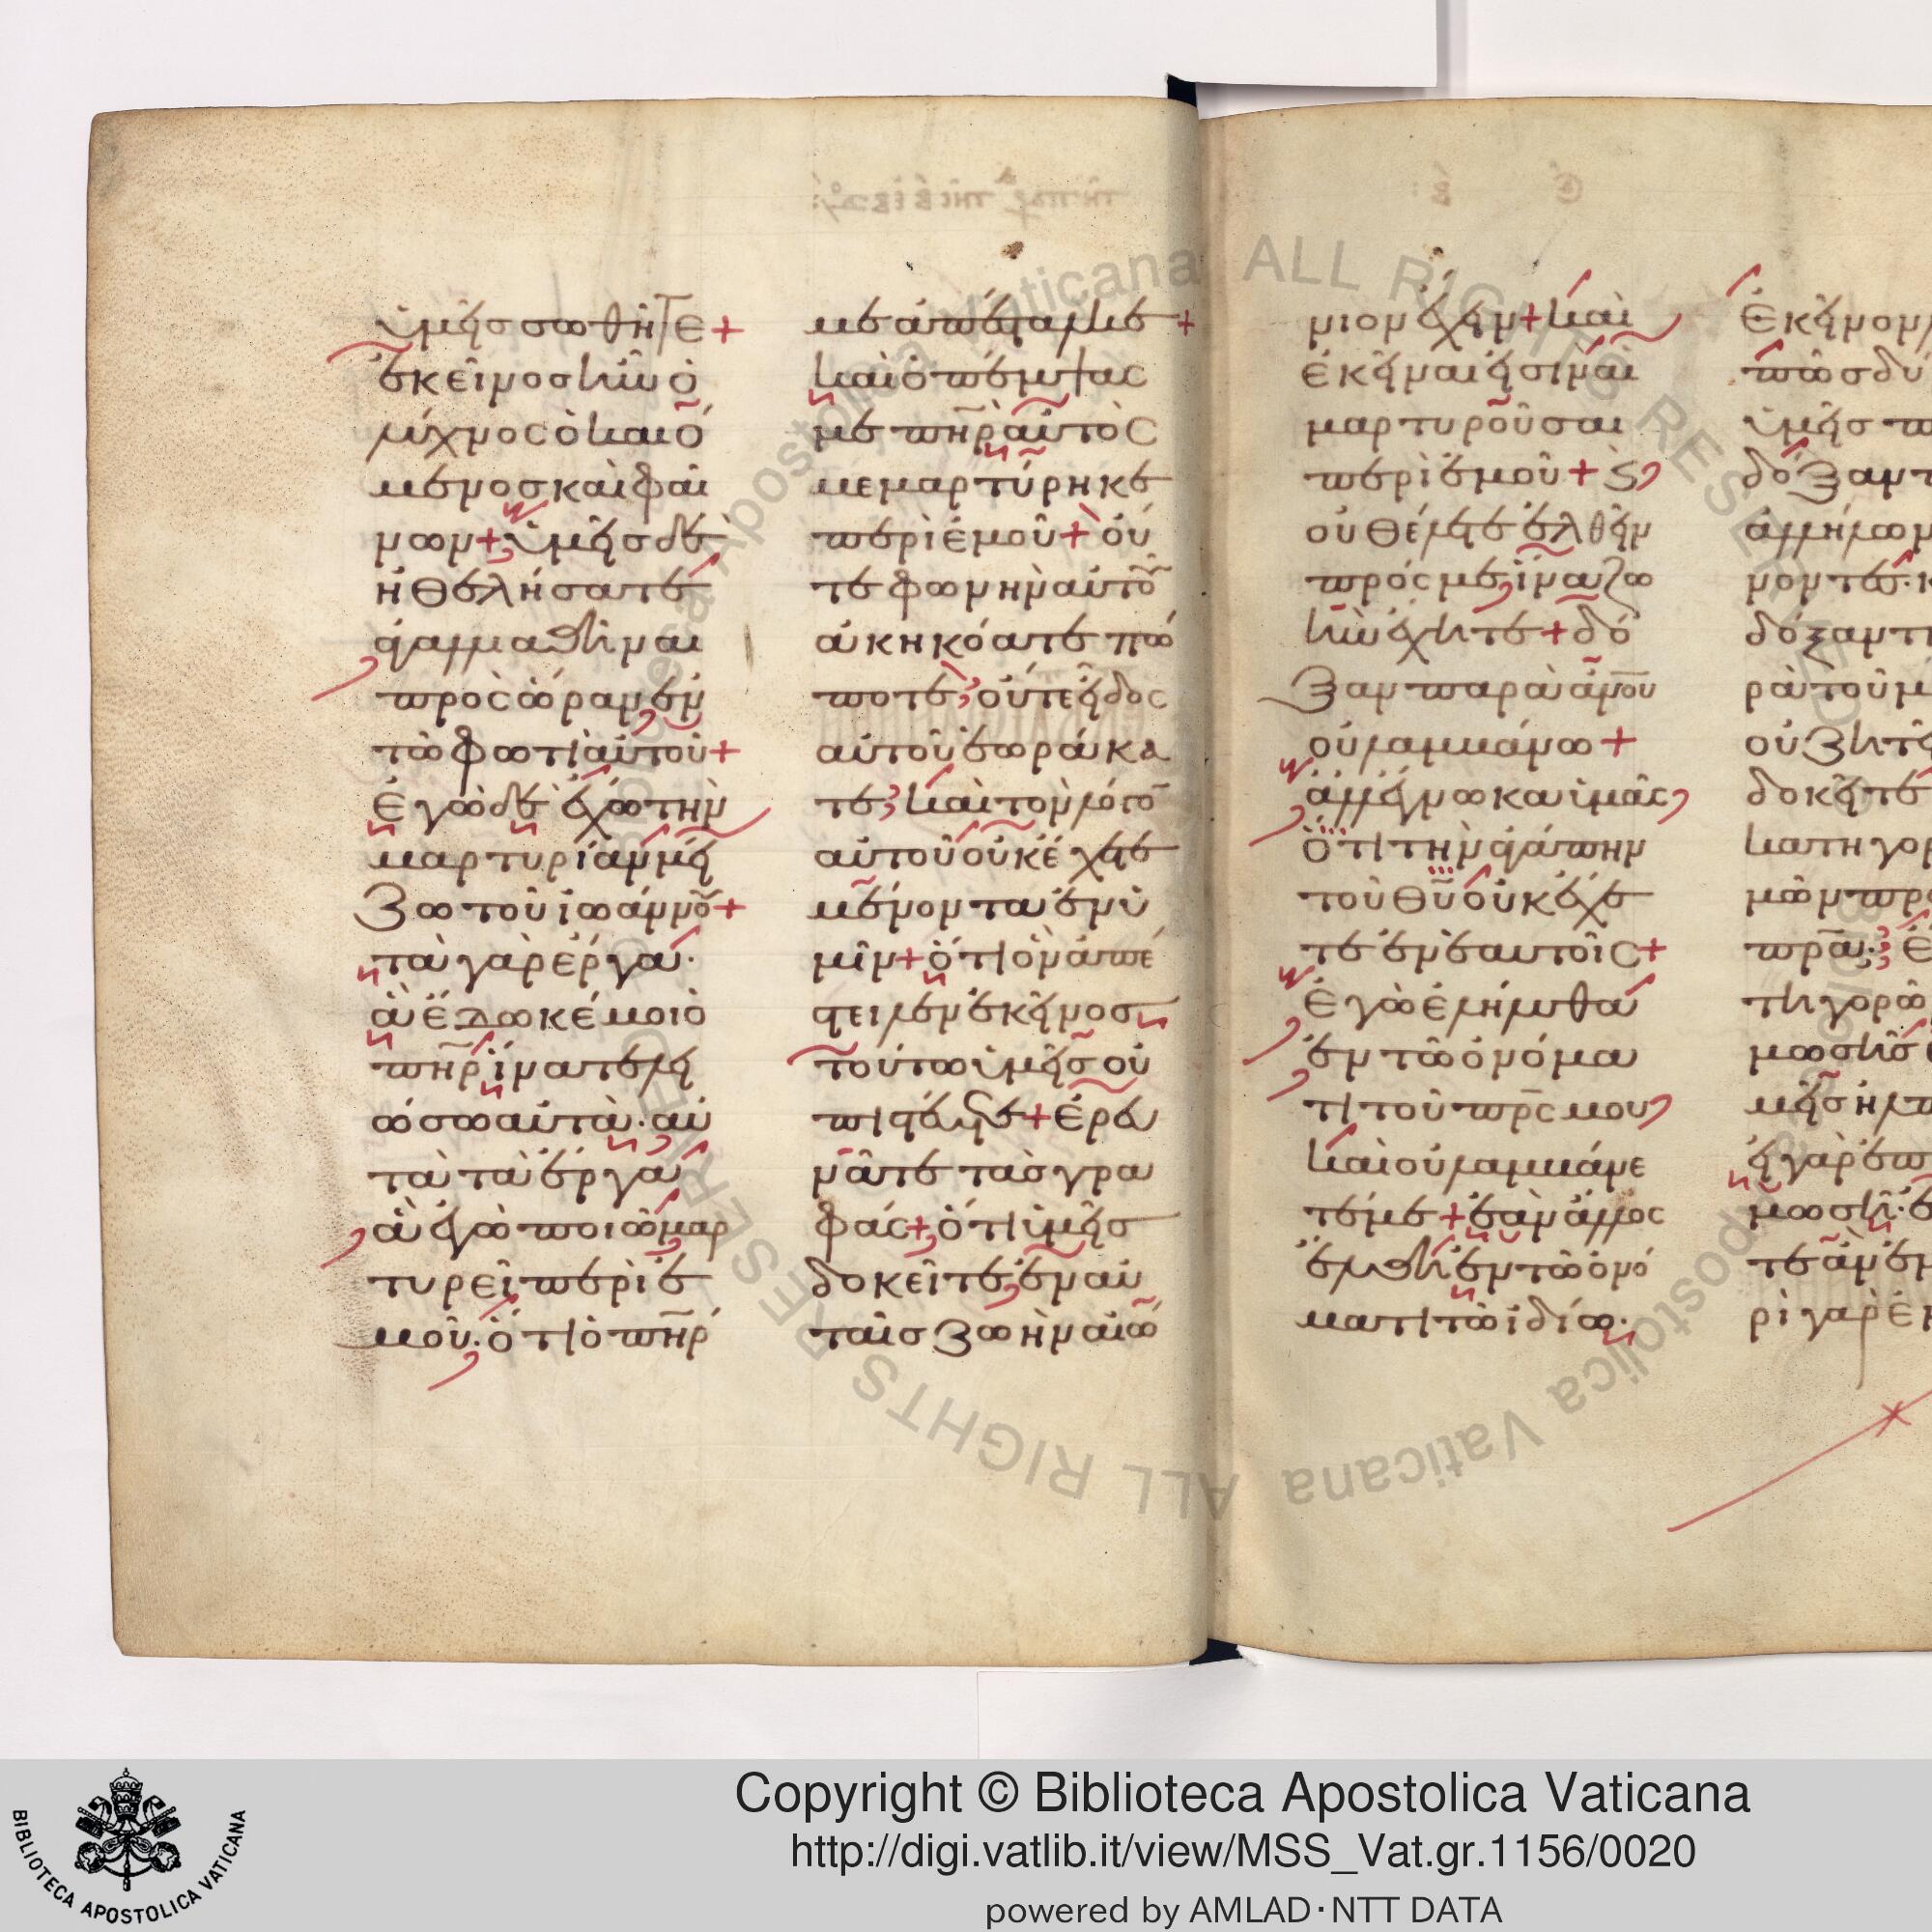 ὑμεῖς σωθῆτε+
ἐκεῖνος ἦν ὁ
λύχνος ὁ καιό
μενος καὶ φαί
νων+ ὑμεῖς δὲ
ἠθελήσατε
ἀγαλλιαθῆναι
πρὸς ὥραν ἐν
τῶ φωτὶ αὐτοῦ+
Ἐγὼ δὲ ἔχω τὴν
μαρτυρίαν μεί
ζω τοῦ ἰωάννου+
τὰ γὰρ ἔργα·
ἃ ἔδωκέ μοι ὁ
πη̅ρ ἵνα τελει
ώσω αὐτά· αὐ
τὰ τὰ ἔργα
ἃ ἐγὼ ποιῶ μαρ
τυρεῖ περὶ ἐ
μοῦ· ὅτι ὁ πη̅ρ
με ἀπέσταλκε+
καὶ ὁ πέμψας
με πη̅ρ αὐτὸς
μεμαρτύρηκε
περὶ ἐμοῦ+ οὔ
τε φωνὴν αὐτοῦ
ἀκηκόατε πώ
ποτε, οὔτε εἶδος
αὐτοῦ ἑωράκα
τε, καὶ τὸν λόγον
αὐτοῦ οὐκ ἔχετε
μένοντα ἐν ὑ
μῖν+ ὅτι ὃν ἀπέ
στειλεν ἐκεῖνος
τούτω ὑμεῖς οὐ
πιστεύετε+ ἐρευ
νᾶτε τὰς γρα
φάς+ ὅτι ὑμεῖς
δοκεῖτε ἐν αὐ
ταῖς ζωὴν αἰώ
νιον ἔχειν+ καὶ
ἐκεῖναι εἰσὶν αἱ
μαρτυροῦσαι
περὶ ἐμοῦ+ ϗ
οὐ θέλετε ἐλθεῖν
πρός με ἵνα ζω
ὴν ἔχητε+ δό
ξαν παρὰ ἀν̅ου
οὐ λαμβάνω+
ἀλλ' ἔγνωκα ὑμᾶς
ὅτι τὴν ἀγάπην
τοῦ θυ̅ οὐκ ἔχε
τε ἐν ἑαυτοῖς+
Ἐγὼ ἐλήλυθα
ἐν τῶ ὀνόμα
τι τοῦ πρ̅ς μου
καὶ οὐ λαμβάνε
τέ με+ ἐὰν ἄλλος
ἔλθη ἐν τῶ ὀνό
ματι τῶ ἰδίω·
Ἐκεῖνον
πῶς δύ
ὑμεῖς π
δόξαν
ἀλλήλων
δόξαν τὴ
ρὰ τοῦ μ
οὐ ζητεῖ
δοκεῖτε
κατηγορ
μῶν πρὸ
πρα̅·
τηγορῶ
μωσῆς
εἰ γὰρ ἐπ
μωσῆ·
ρὶ γὰρ ἐ
Copyright © Biblioteca Apostolica Vaticana
http://digi.vatlib.it/view/MSS_Vat.gr.1156/0020
powered by AMLAD·NTT DATA
BIBLIOTECA APOSTOLICA VATICANA